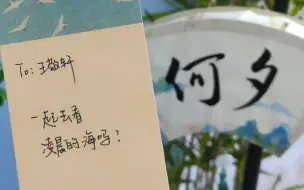 To: 王敬轩
一起去看
凌晨的海吗？
何夕